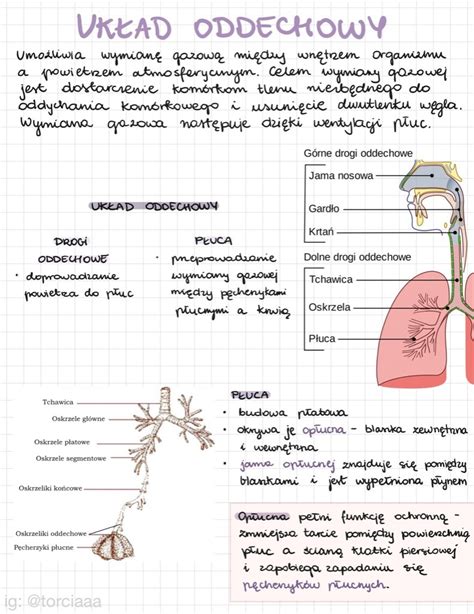 UKŁAD ODDECHOWY
Umożliwia wymianę gazową między wnętrzem organizmu
a powietrzem atmosferycznym. Celem wymiany gazowej
jest dostarczenie komórkom tlenu niezbędnego do
oddychania komórkowego i usunięcie dwutlenku węgla.
Wymiana gazowa następuje dzięki wentylacji płuc.
Górne drogi oddechowe
Jama nosowa
Gardło
Krtań
Dolne drogi oddechowe
Tchawica
Oskrzela
Płuca
UKŁAD ODDECHOWY
DROGI
ODDECHOWE
• doprowadzanie
powietrza do płuc
PŁUCA
• przeprowadzanie
wymiany gazowej
między pęcherzykami
płucnymi a krwią
Tchawica
Oskrzele główne
Oskrzele płatowe
Oskrzele segmentowe
Oskrzeliki końcowe
Oskrzeliki oddechowe
Pęcherzyki płucne
PŁUCA
• budowa płatowa
• okrywa je opłucna - blanka zewnętrzna
i wewnętrzna
• jama opłucnej znajduje się pomiędzy
blankami i jest wypełniona płynem
Opłucna pełni funkcję ochronną -
zmniejsza tarcie pomiędzy powierzchnią
płuc a ścianą klatki piersiowej
i zapobiega zapadaniu się
pęcherzyków płucnych.
ig: @torciaaa